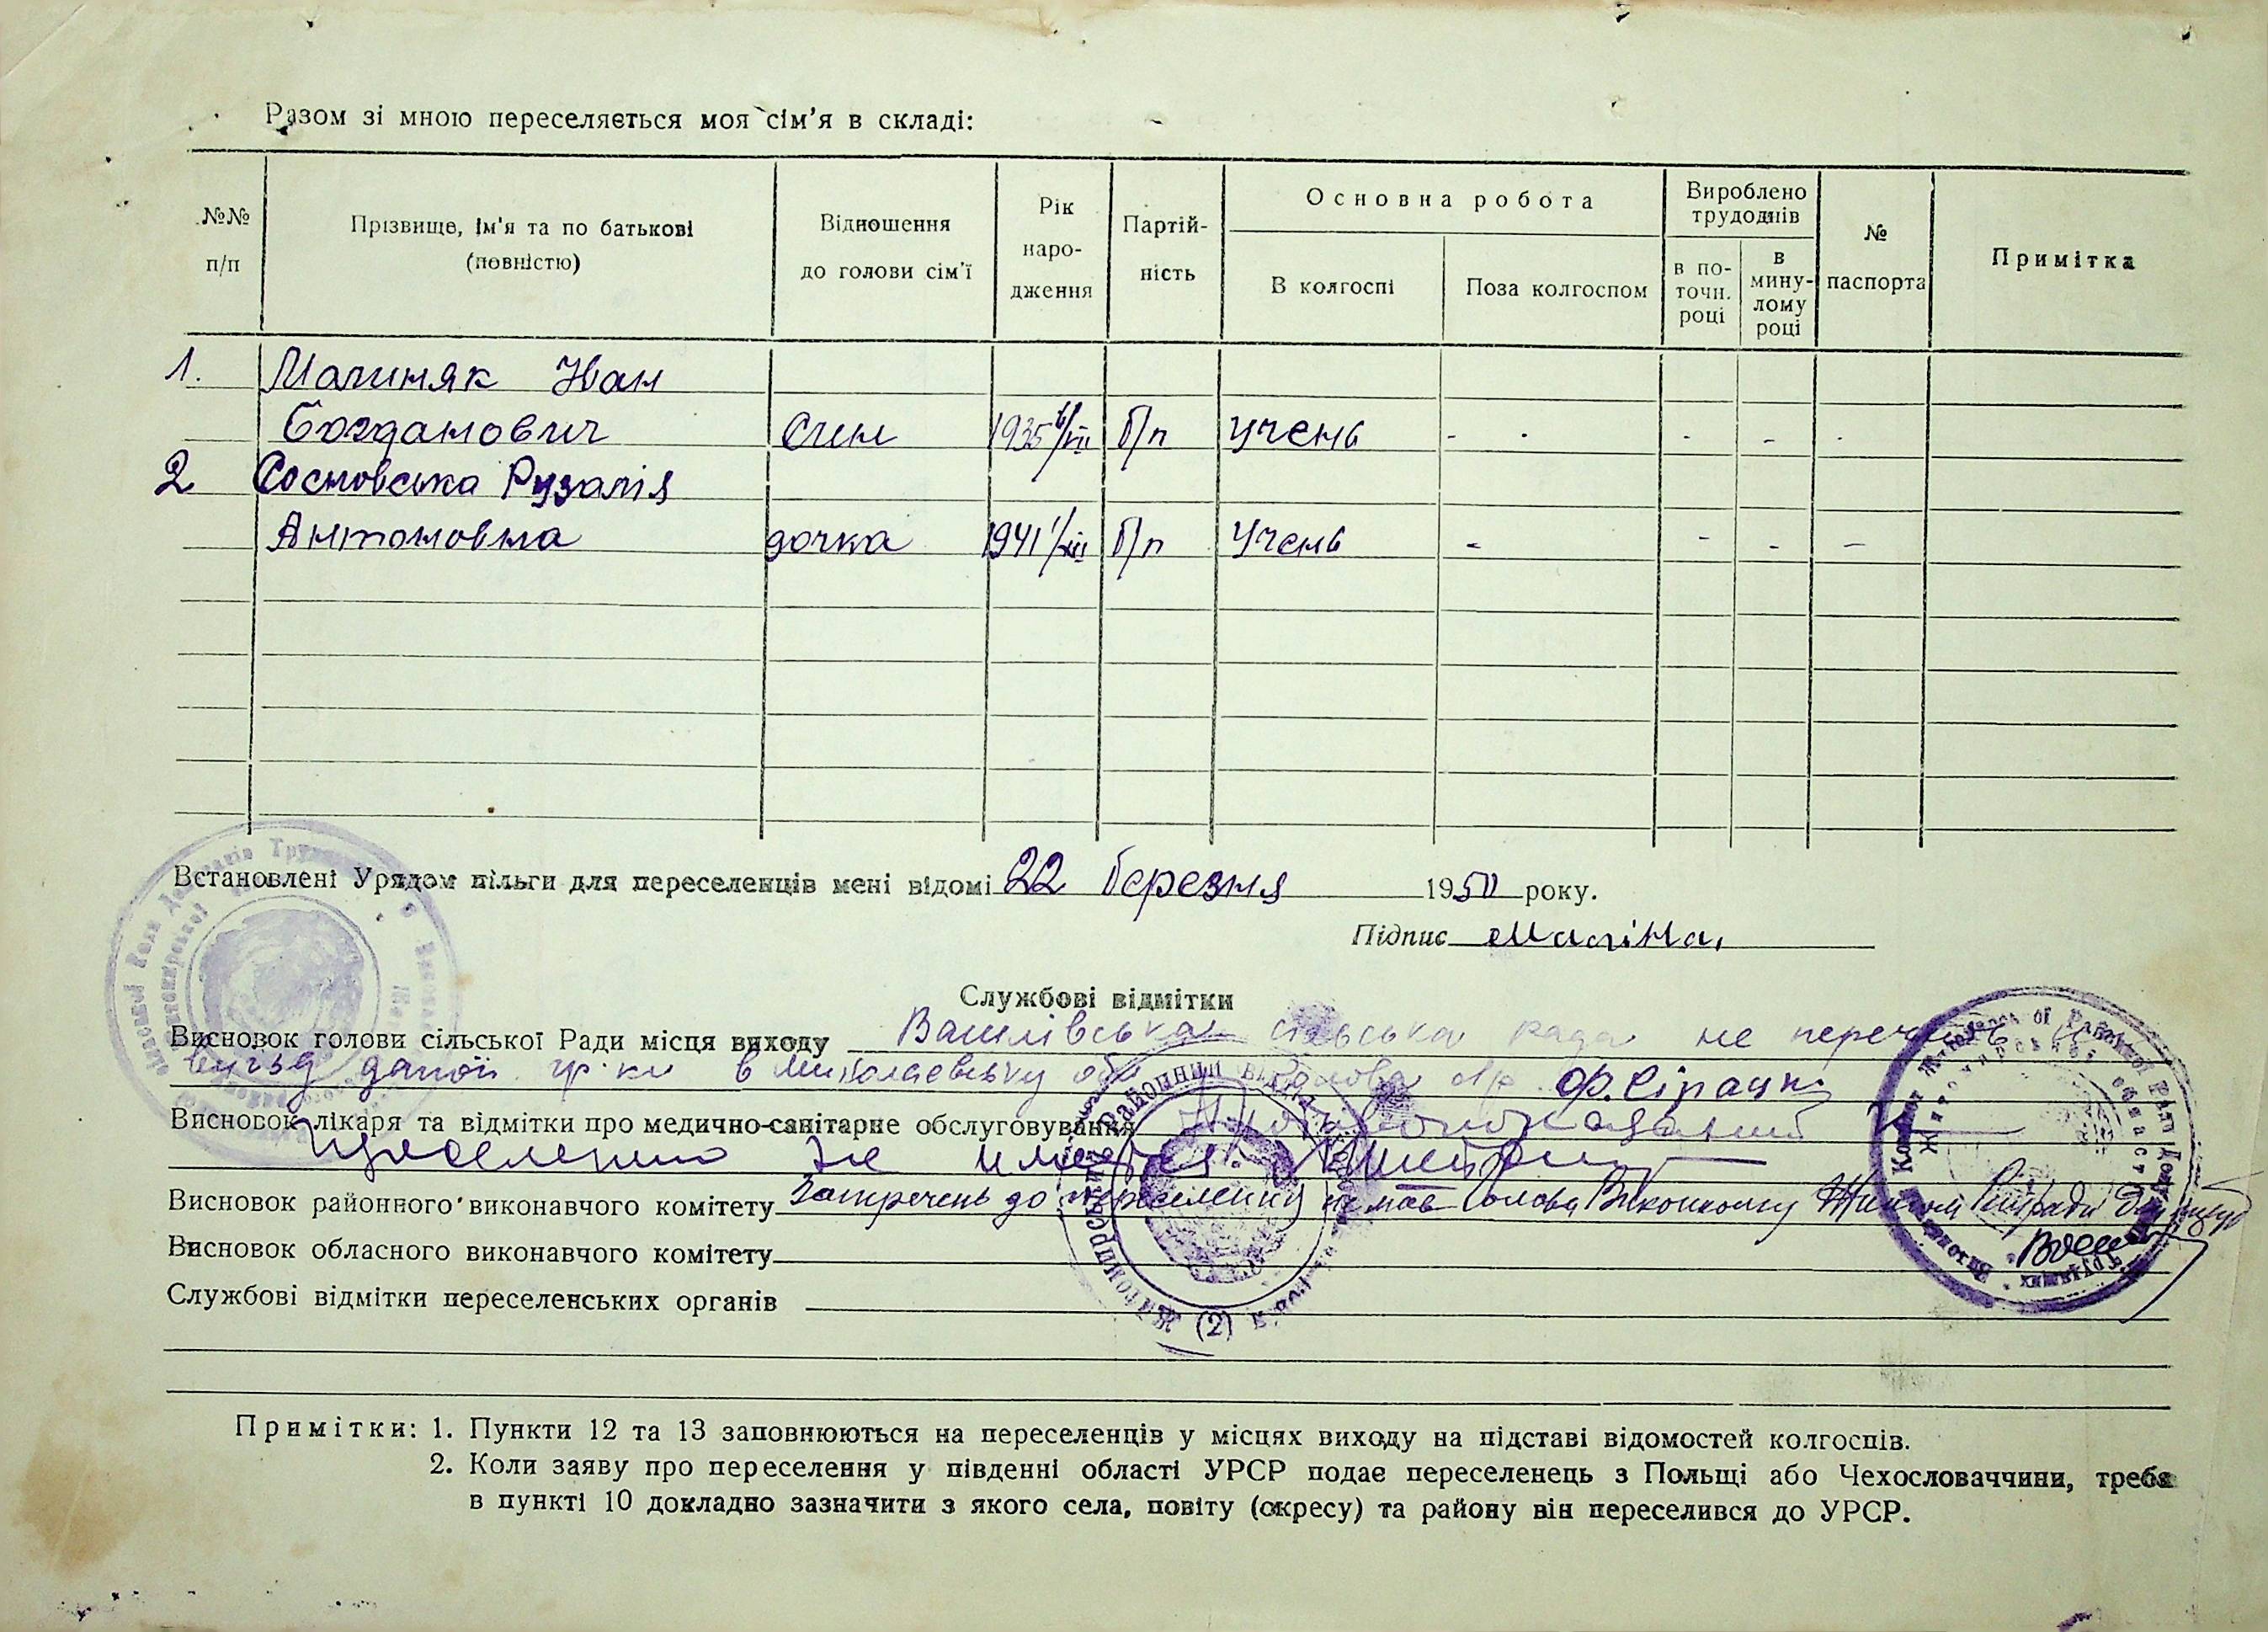 Разом зі мною переселяється моя сім'я в складі:
№№ п/п
Прізвище, ім'я та по батькові (повністю)
Відношення до голови сім'ї
Рік народження
Партійність
Основна робота
В колгоспі
Поза колгоспом
Вироблено трудоднів
в поточн. році
в минулому році
№ паспорта
Примітка
1. Малиняк Іван
Богданович син 1935 б/п учень - - - - -
2 Сосновська Рузалія
Антоновна дочка 1941 б/п Учень - - - -
Встановлені Урядом пільги для переселенців мені відомі 22 березня 1950 року.
Підпис
Службові відмітки
Висновок голови сільської Ради місця виходу сільська рада не перечить
виїзд даної гр.ки в Миколаєвську обл Голова с/р
Висновок лікаря та відмітки про медично-санітарне обслуговування
не имеется
Висновок районного виконавчого комітету Заперечень до переселення не має Голова Виконкому
Висновок обласного виконавчого комітету
Службові відмітки переселенських органів
(2)
Примітки: 1. Пункти 12 та 13 заповнюються на переселенців у місцях виходу на підставі відомостей колгоспів.
2. Коли заяву про переселення у південні області УРСР подає переселенець з Польщі або Чехословаччини, треба
в пункті 10 докладно зазначити з якого села, повіту (окресу) та району він переселився до УРСР.